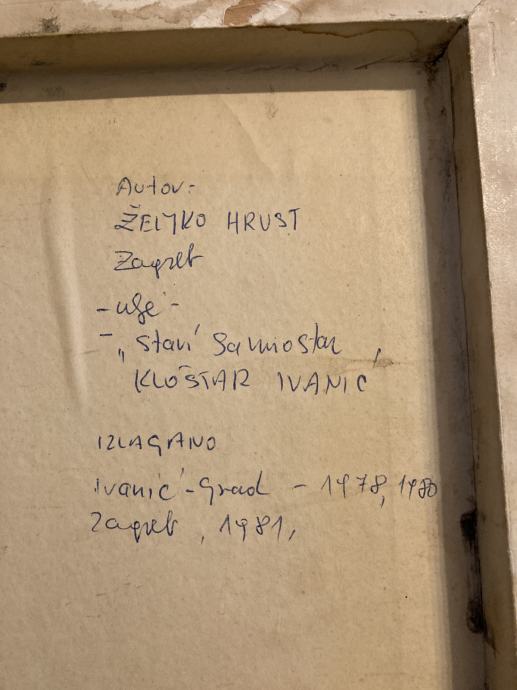 Autor:
ŽELJKO HRUST
Zagreb
- ulje -
- „Stari Samostan
KLOŠTAR IVANIĆ
IZLAGANO
Ivanić-Grad - 1978, 1980
Zagreb, 1981,